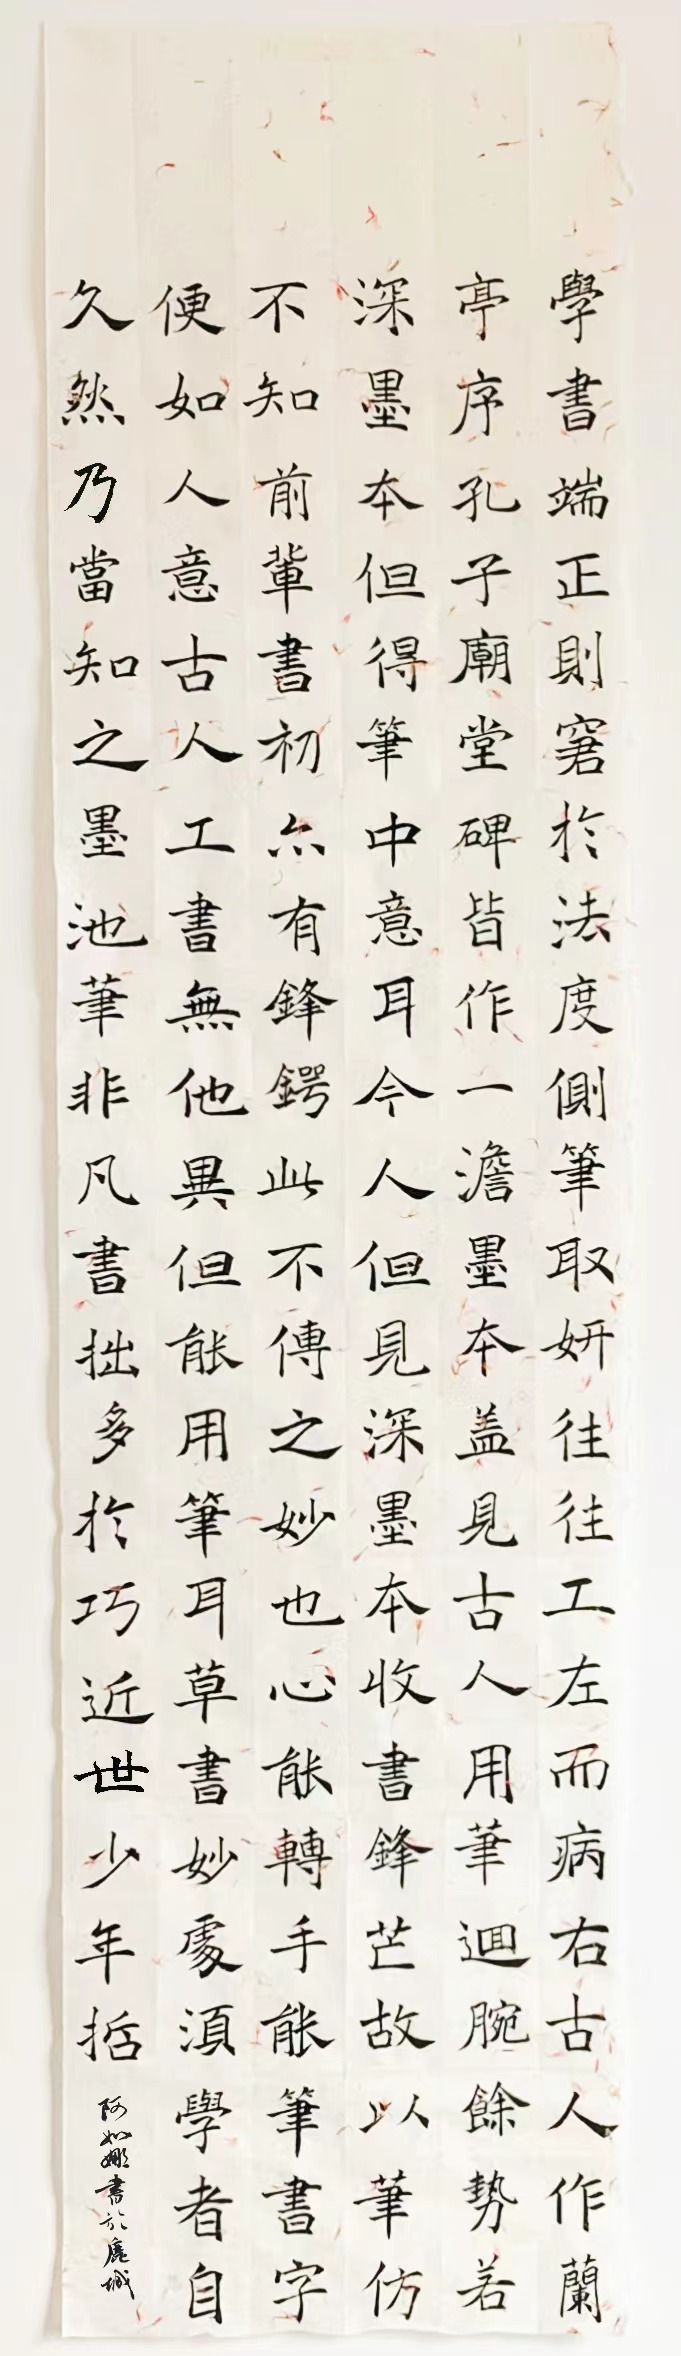 學書端正則窘於法度側筆取妍往往工左而病右古人作蘭
亭序孔子廟堂碑皆作一澹墨本盖見古人用筆迴腕餘勢若
深墨本但得筆中意耳今人但見深墨本收書鋒芒故以筆仿
不知前軰書初亦有鋒鍔此不傳之妙也心能轉手能筆書字
便如人意古人工書無他異但能用筆耳草書妙處須學者自
久然乃當知之墨池筆非凡書拙多於巧近世少年括
阿如娜書於鹿城